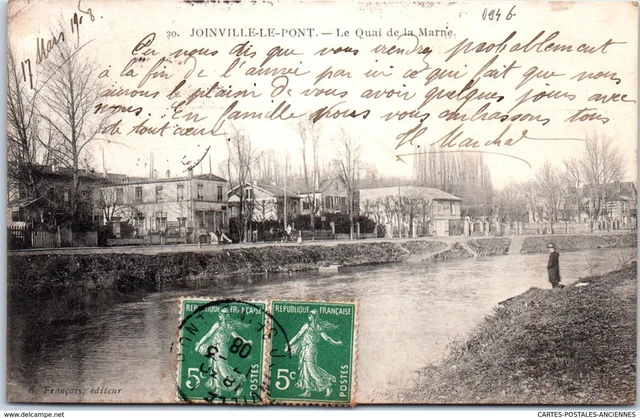 20. JOINVILLE-LE-PONT. — Le Quai de la Marne.
094 b
17 Mars 1908
nous dis que vous viendrez probablement
à la fin de l'année par ici ce qui fait que nous
aurons le plaisir de vous avoir quelques jours avec
nous. En famille nous vous embrassons tous
de tout cœur
Marchal
REPUBLIQUE FRANÇAISE
5c
POSTES
REPUBLIQUE FRANÇAISE
5c
POSTES
08
François, éditeur
CARTES-POSTALES-ANCIENNES.COM